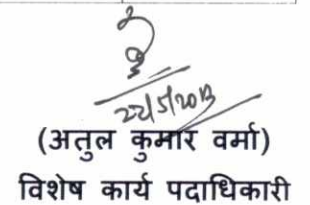 22/5/2013
(अतुल कुमार वर्मा)
विशेष कार्य पदाधिकारी